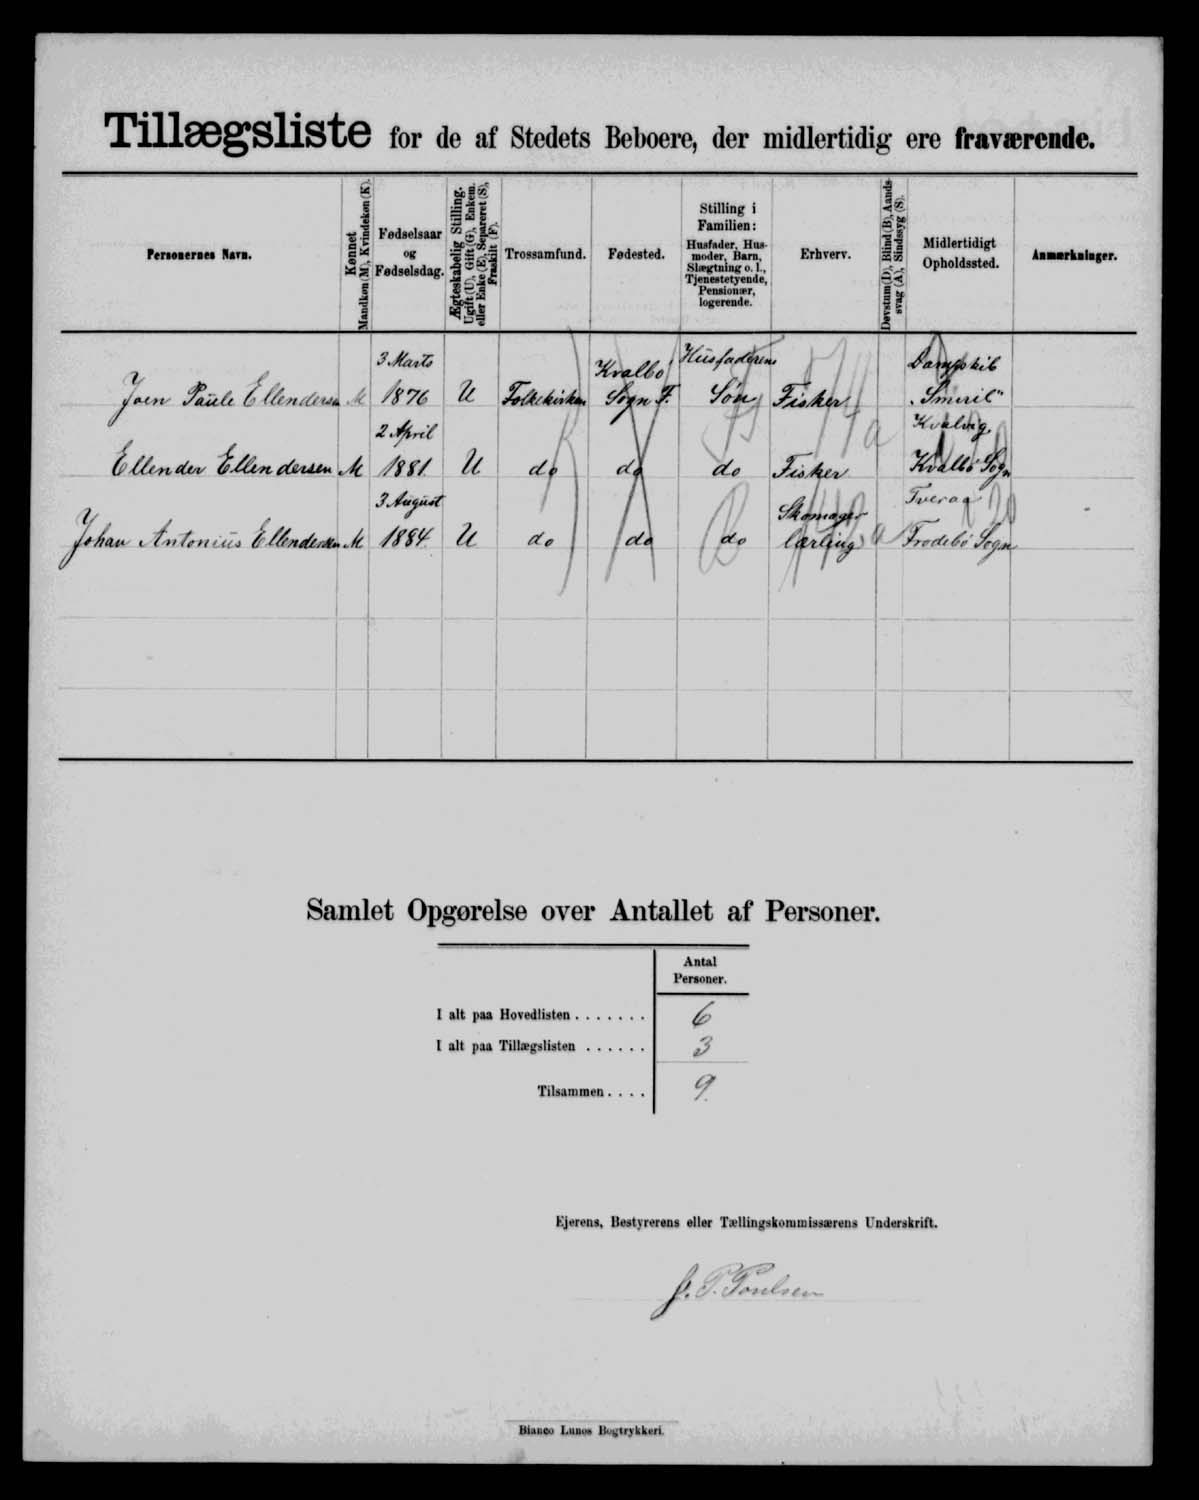 Tillægsliste for de af Stedets Beboere, der midlertidig ere fraværende.
Personernes Navn.
Kønnet
Mandkøn (M), Kvindekøn (K).
Fødselsaar
og
Fødselsdag.
Ægteskabelig Stilling.
Ugift (U), Gift (G), Enkem.
eller Enke (E), Separeret (S),
Fraskilt (F).
Trossamfund.
Fødested.
Stilling i
Familien:
Husfader, Hus-
moder, Barn,
Slægtning o. l.,
Tjenestetyende,
Pensionær,
logerende.
Erhverv.
Døvstum (D), Blind (B), Aands-
svag (A), Sindssyg (S).
Midlertidigt
Opholdssted.
Anmærkninger.
3 Marts Kvalbø Husfaderens Dampskib
Joen Paule Ellendersen M 1876 U Folkekirken Sogn F. Søn Fisker „Smiril"
2 April Kvalvig
Ellender Ellendersen M 1881 U do do do Fisker Kvalbø Sogn
3 August Skomager Tveraa
Johan Antonius Ellendersen M 1884 U do do do lærling Frodebø Sogn
Samlet Opgørelse over Antallet af Personer.
Antal
Personer.
I alt paa Hovedlisten . . . . . . . 6
I alt paa Tillægslisten . . . . . . 3
Tilsammen . . . . 9.
Ejerens, Bestyrerens eller Tællingskommissærens Underskrift.
J. P. Poulsen
Bianco Lunos Bogtrykkeri.